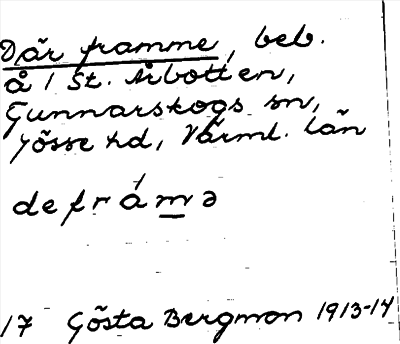 Där framme, beb.
å 1 St. Årbotten,
Gunnarskogs sn,
Jösse hd, Värml. län
defráma̱ə
17 Gösta Bergman 1913-14